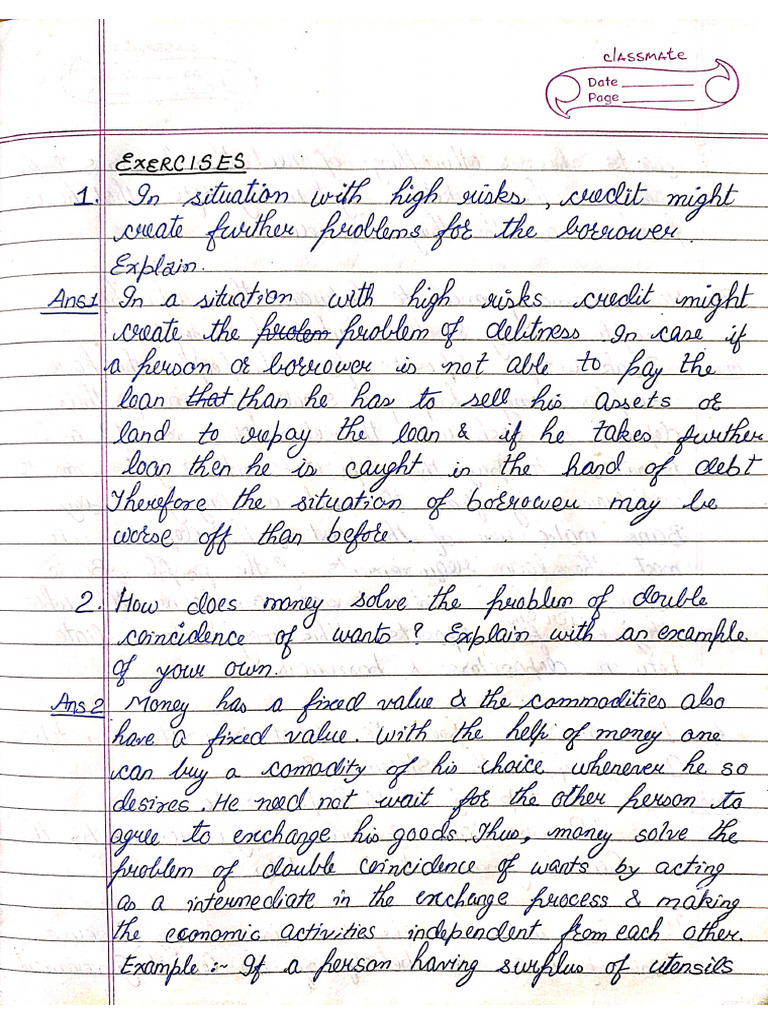 classmate
Date
Page
EXERCISES
1. In situation with high risks, credit might
create further problems for the borrower.
Explain.
Ans1 In a situation with high risks credit might
create the prolem problem of debitness. In case if
a person or borrower is not able to pay the
loan that than he has to sell his assets or
land to repay the loan & if he takes further
loan then he is caught in the hand of debt
Therefore the situation of borrower may be
worse off than before.
2. How does money solve the problem of double
coincidence of wants? Explain with an example
of your own.
Ans 2 Money has a fixed value & the commodities also
have a fixed value. With the help of money one
can buy a comodity of his choice whenever he so
desires. He need not wait for the other person to
agree to exchange his goods. Thus, money solve the
problem of double coincidence of wants by acting
as a intermediate in the exchange process & making
the economic activities independent from each other.
Example :- If a person having surplus of utensils